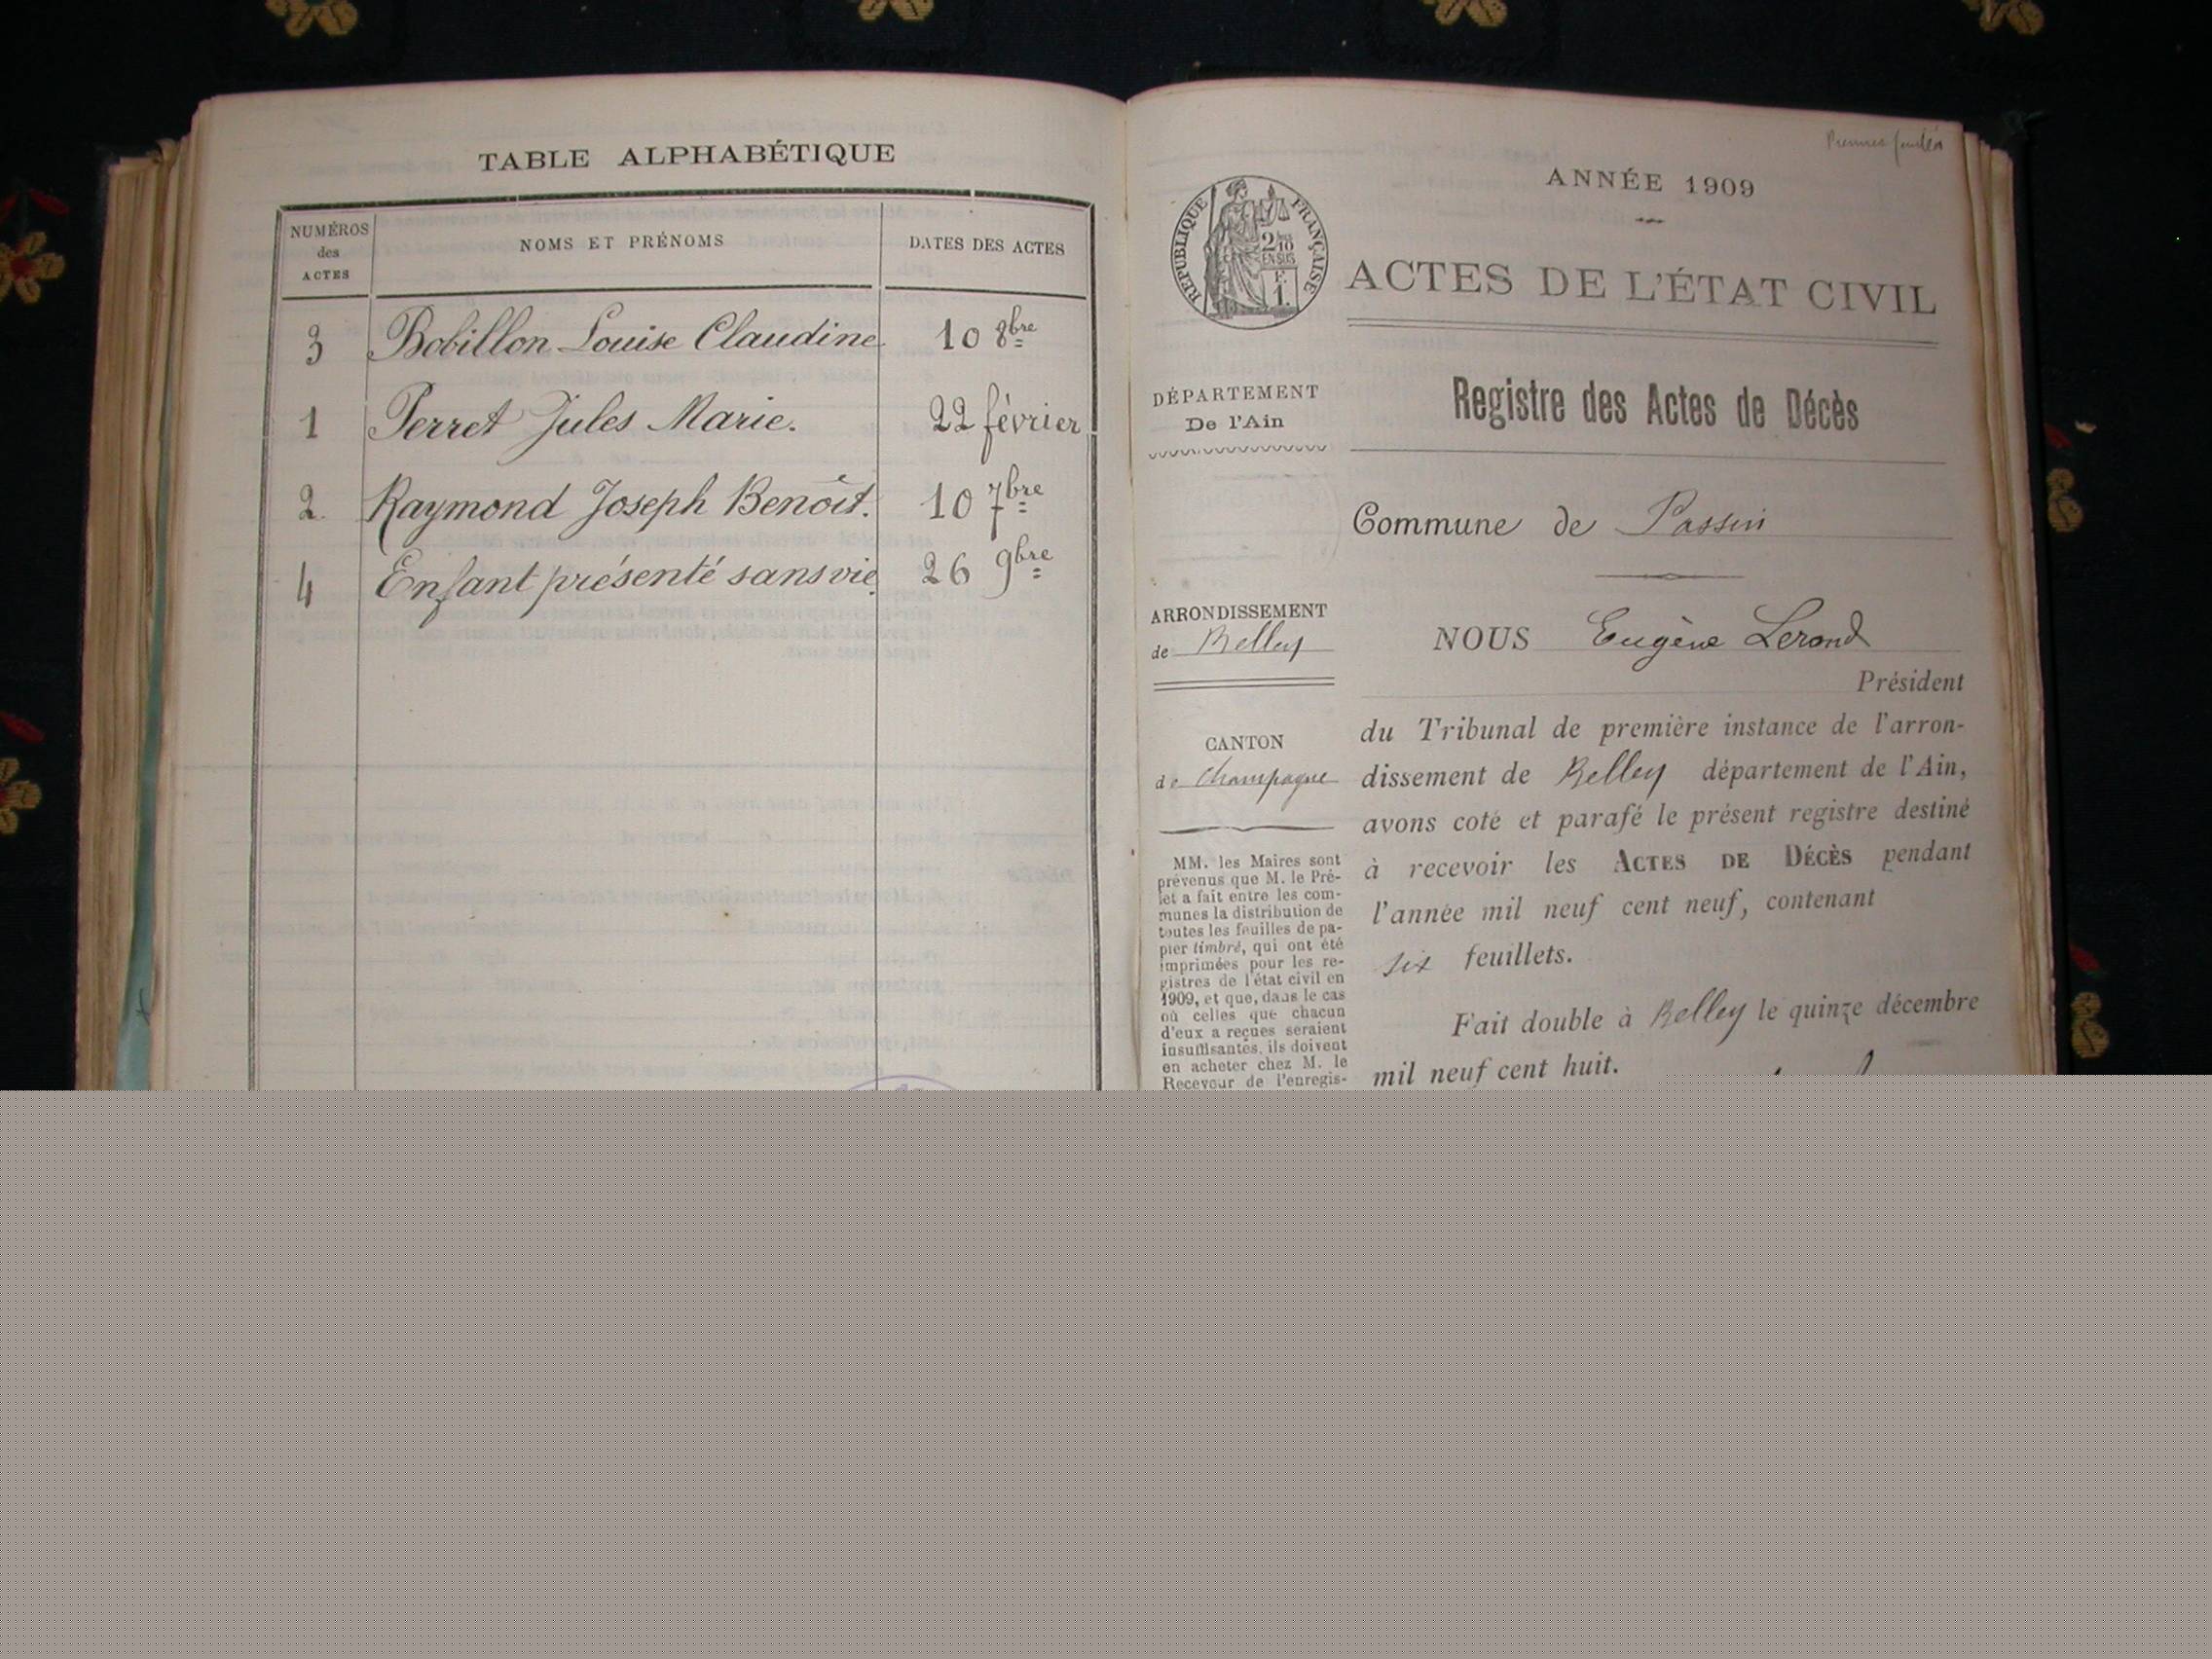 TABLE ALPHABÉTIQUE
NUMÉROS
des
ACTES
NOMS ET PRÉNOMS
DATES DES ACTES
3 Bobillon Louise Claudine 10 8bre
1 Perret Jules Marie. 22 février
2 Raymond Joseph Benoît. 10 7bre
4 Enfant présenté sans vie. 26 9bre
Premier feuillet
ANNÉE 1909
RÉPUBLIQUE FRANÇAISE
2/10
EN SUS
F.
1.
ACTES DE L'ÉTAT CIVIL
Registre des Actes de Décès
DÉPARTEMENT
De l'Ain
Commune de Passin
ARRONDISSEMENT
de Belley
CANTON
de Champagne
MM. les Maires sont
prévenus que M. le Pré-
fet a fait entre les com-
munes la distribution de
toutes les feuilles de pa-
pier timbré, qui ont été
imprimées pour les re-
gistres de l'état civil en
1909, et que, dans le cas
où celles que chacun
d'eux a reçues seraient
insuffisantes, ils doivent
en acheter chez M. le
Receveur de l'enregis-
NOUS Eugène Lerond
Président
du Tribunal de première instance de l'arron-
dissement de Belley département de l'Ain,
avons coté et parafé le présent registre destiné
à recevoir les ACTES DE DÉCÈS pendant
l'année mil neuf cent neuf, contenant
six feuillets.
Fait double à Belley le quinze décembre
mil neuf cent huit.